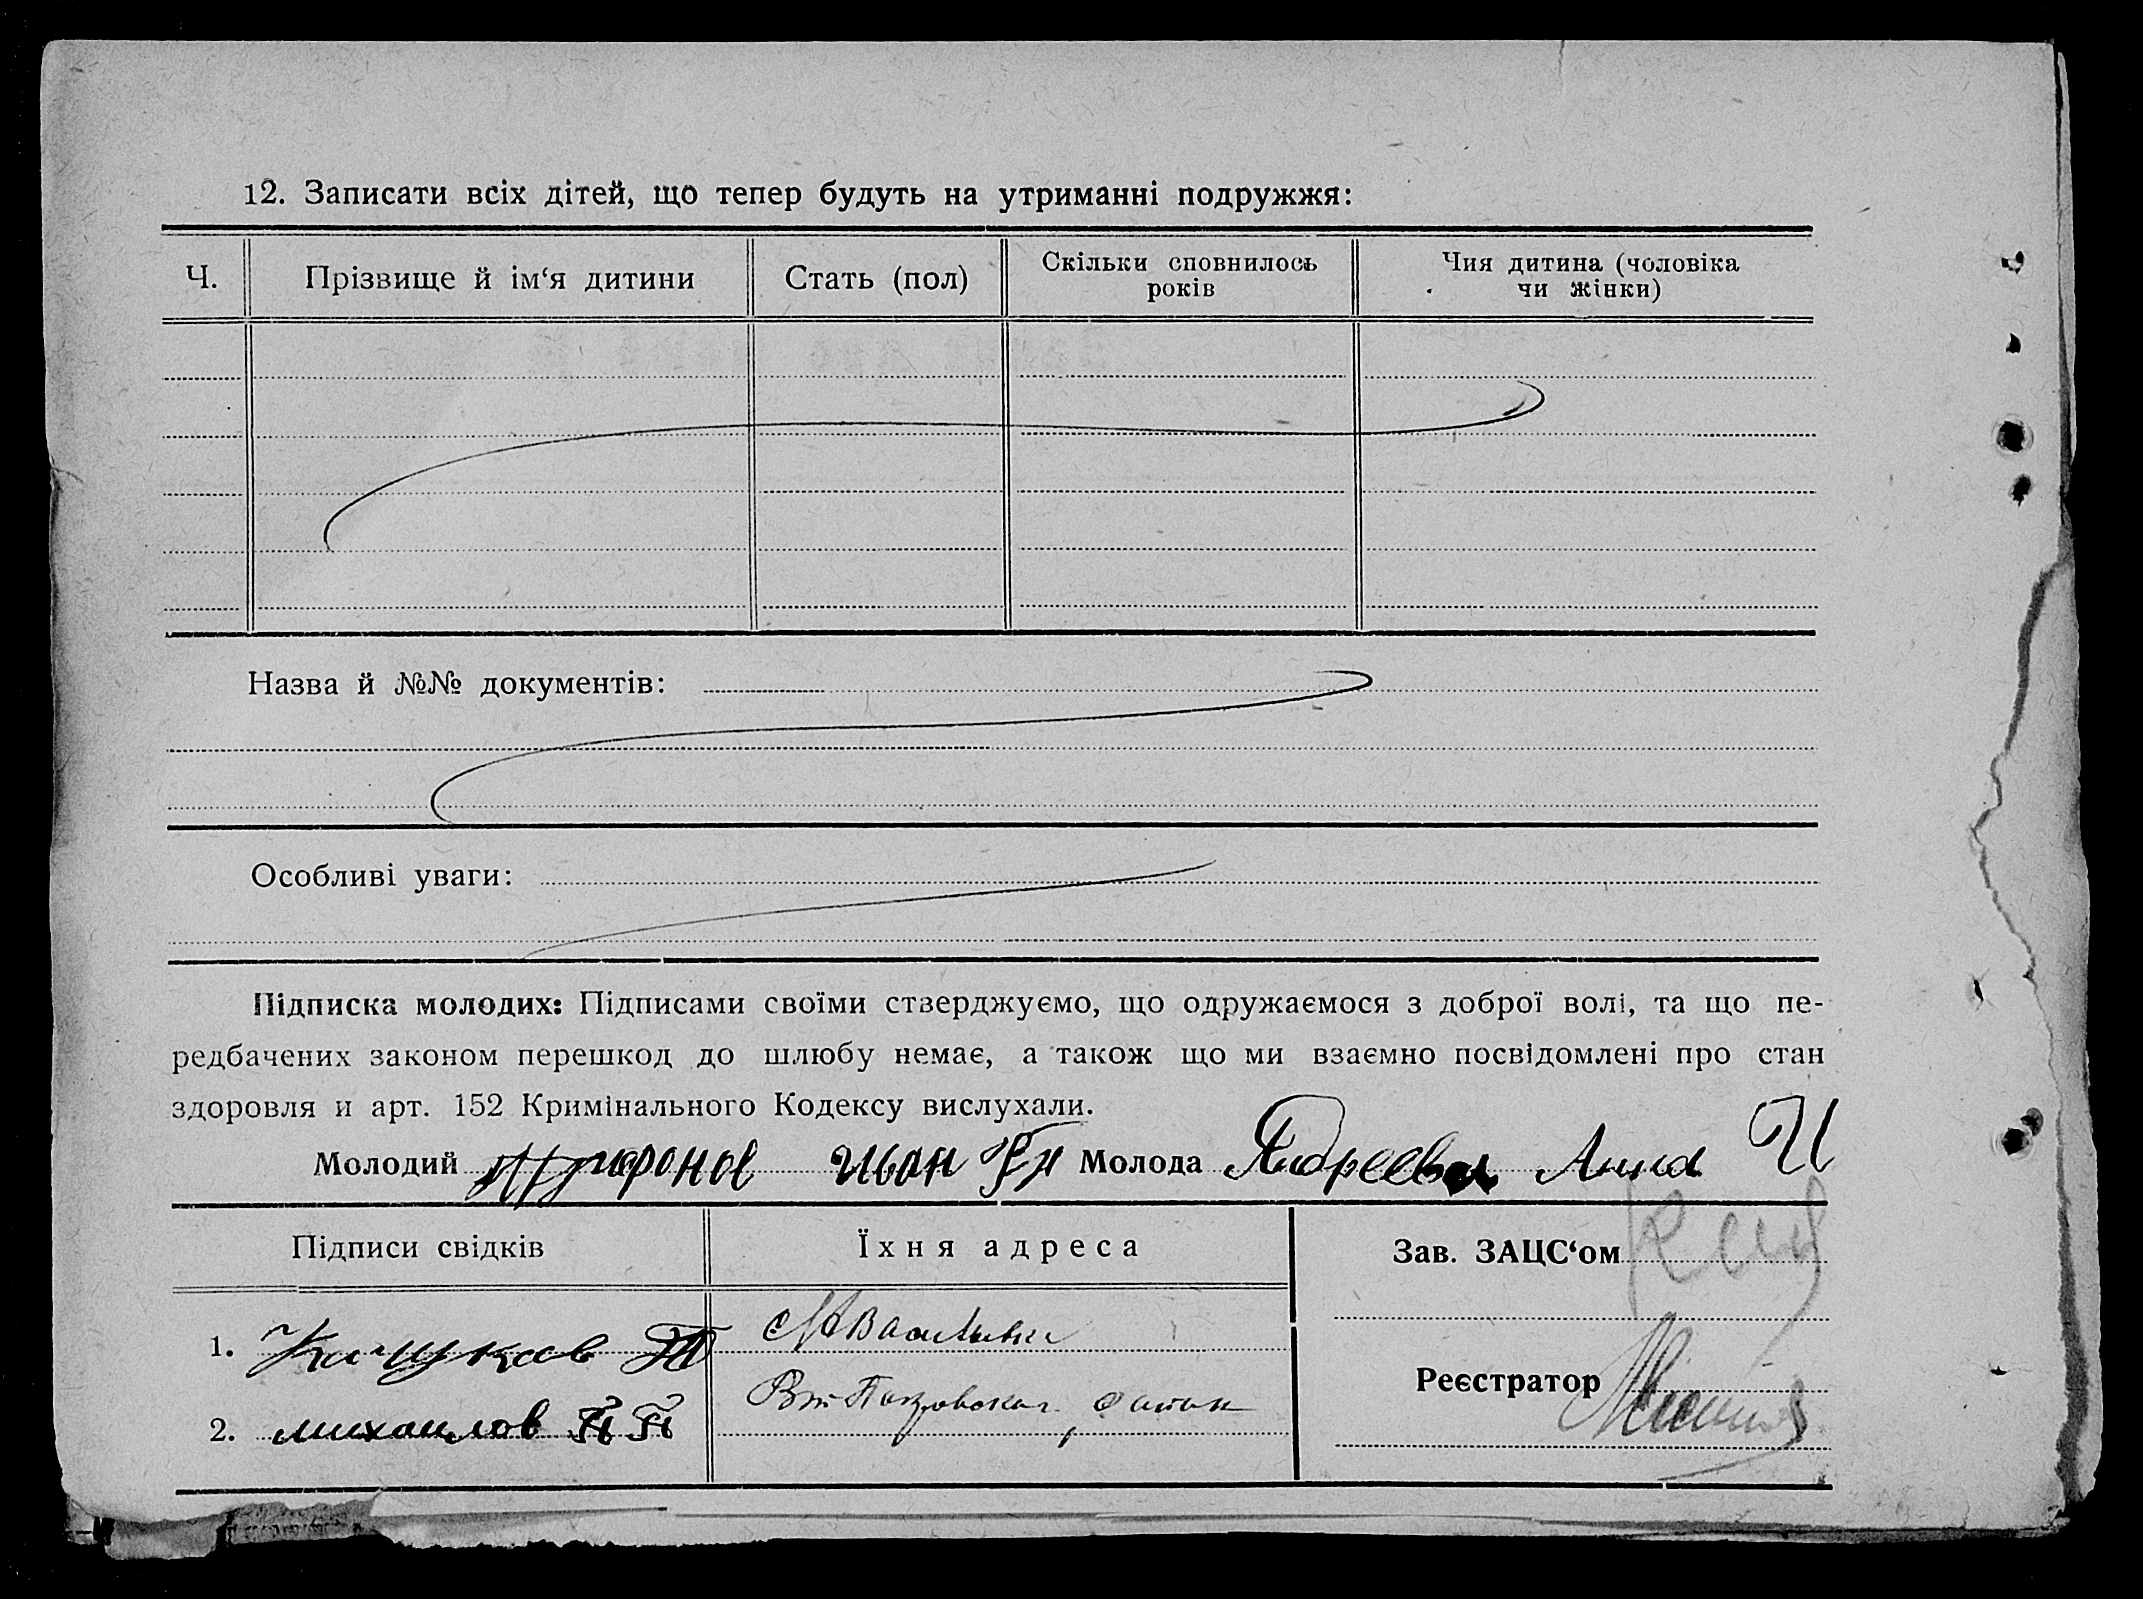 12. Записати всіх дітей, що тепер будуть на утриманні подружжя:
Ч. Прізвище й ім‘я дитини Стать (пол) Скільки сповнилось років Чия дитина (чоловіка чи жінки)
Назва й №№ документів:
Особливі уваги:
Підписка молодих: Підписами своїми стверджуємо, що одружаємося з доброї волі, та що пе-
редбачених законом перешкод до шлюбу немає, а також що ми взаємно посвідомлені про стан
здоровля и арт. 152 Кримінального Кодексу вислухали.
Молодий Иван Молода Андреева Анна И
Підписи свідків Їхня адреса Зав. ЗАЦС‘ом
1.
Реєстратор
2. михаилов